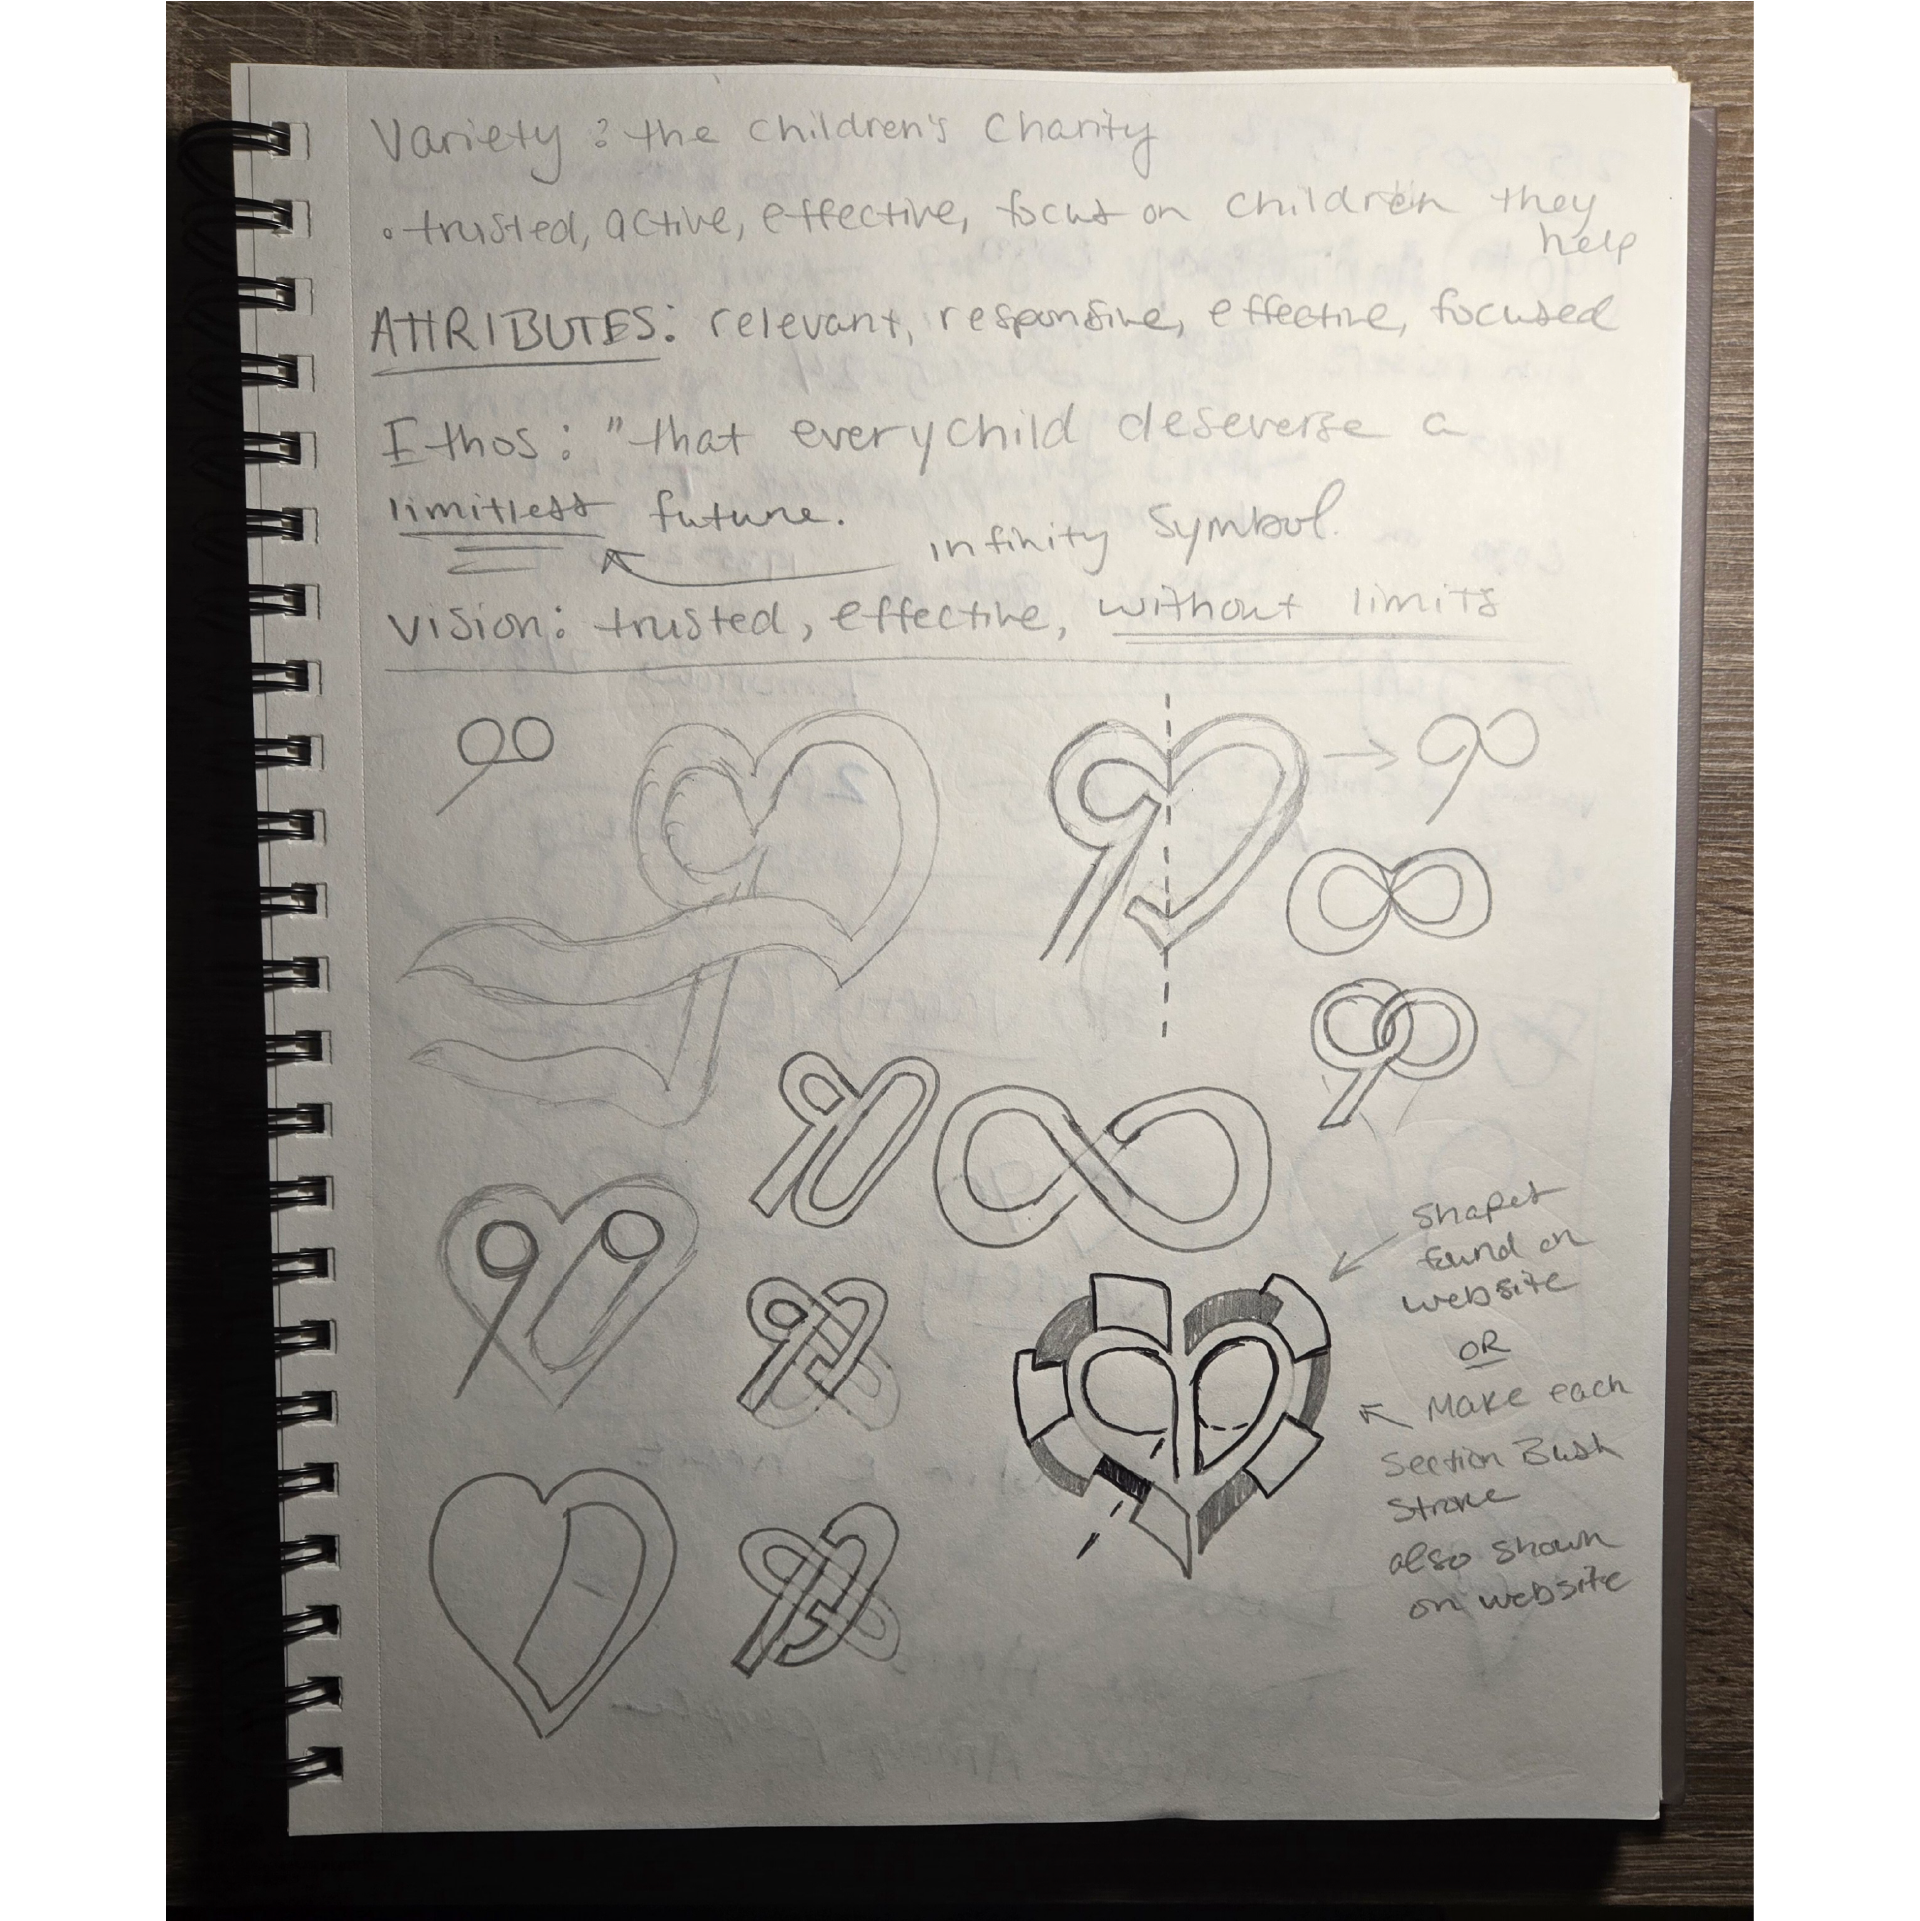 Variety : the children's Charity
• trusted, active, effective, focus on children they
help
ATTRIBUTES: relevant, responsive, effective, focused
Ethos: "that every child deseverse a
limitless future.
infinity symbol.
Vision: trusted, effective, without limits
90
90
Shapes
found on
website
OR
Make each
Section Bush
Stroke
also shown
on website